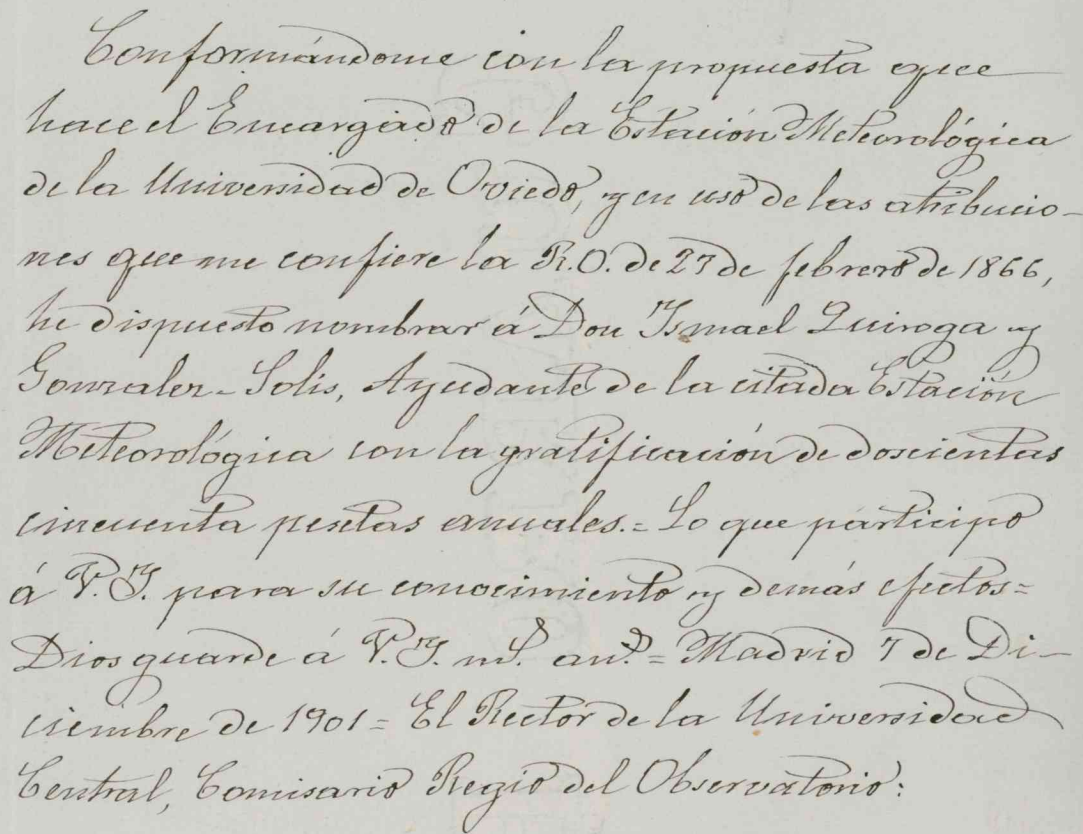 Conformándome con la propuesta que
hace el Encargado de la Estación Meteorológica
de la Universidad de Oviedo, y en uso de las atribucio-
nes que me confiere la R.O. de 27 de febrero de 1866,
he dispuesto nombrar á Don Ismael Quiroga y
Gonzalez-Solis, Ayudante de la citada Estación
Meteorológica con la gratificación de doscientas
cincuenta pesetas anuales.= Lo que participo
á V.I. para su conocimiento y demás efectos=
Dios guarde á V.I. ms. ans.= Madrid 7 de Di-
ciembre de 1901= El Rector de la Universidad
Central, Comisario Regio del Observatorio: